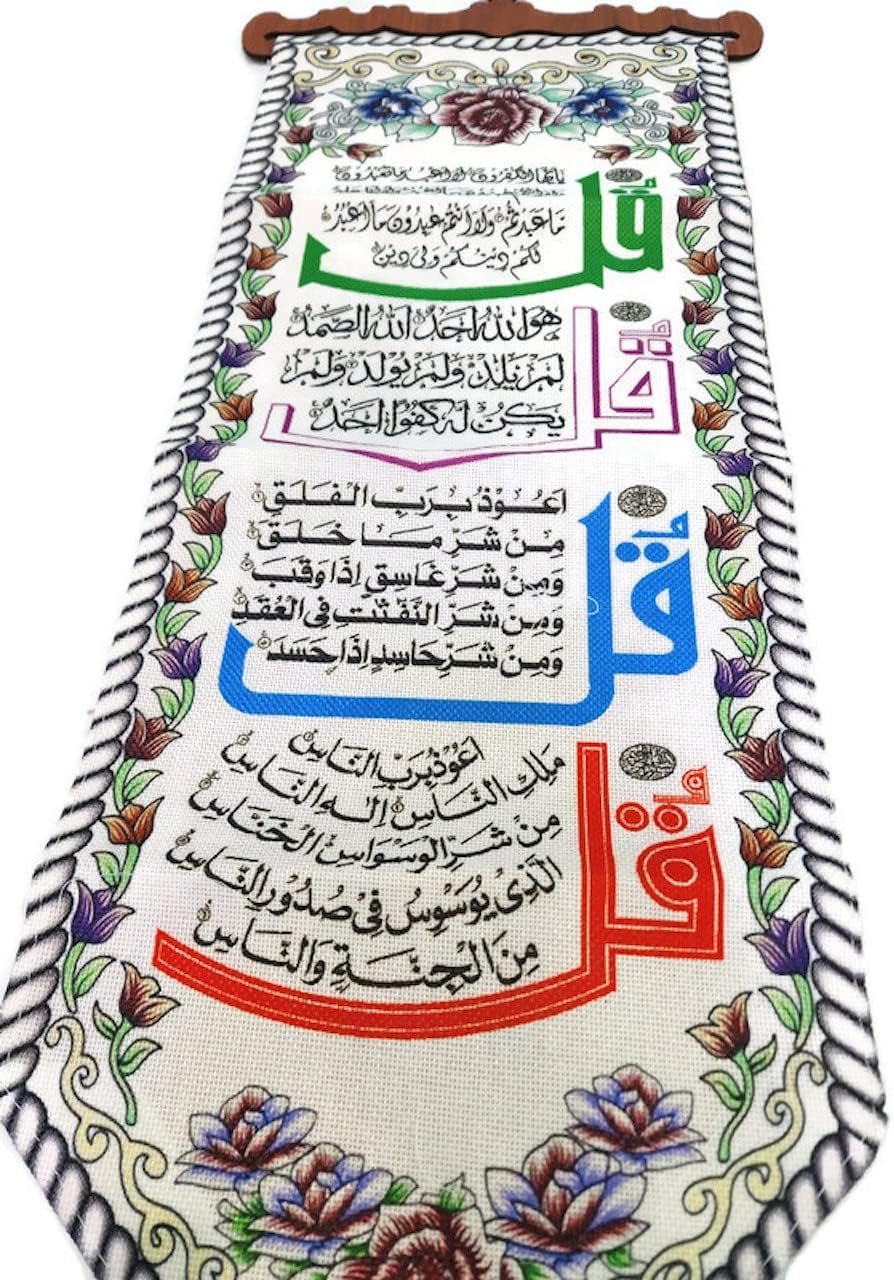 قُلْ
يايها الكفرون لا اعبد ما تعبدون
مَا عَبَدْتُّمْ وَلَا أَنْتُمْ عٰبِدُونَ مَا أَعْبُدُ
لَكُمْ دِينُكُمْ وَلِيَ دِينِ
قُلْ
هُوَ اللهُ اَحَدٌ اَللهُ الصَّمَدُ
لَمْ يَلِدْ وَلَمْ يُولَدْ وَلَمْ
يَكُنْ لَهُ كُفُوًا اَحَدٌ
قُلْ
اَعُوْذُ بِرَبِّ الْفَلَقِ
مِنْ شَرِّ مَا خَلَقَ
وَمِنْ شَرِّ غَاسِقٍ اِذَا وَقَبَ
وَمِنْ شَرِّ النَّفّٰثٰتِ فِى الْعُقَدِ
وَمِنْ شَرِّ حَاسِدٍ اِذَا حَسَدَ
قُلْ
اَعُوْذُ بِرَبِّ النَّاسِ
مَلِكِ النَّاسِ اِلٰهِ النَّاسِ
مِنْ شَرِّ الْوَسْوَاسِ الْخَنَّاسِ
الَّذِىْ يُوَسْوِسُ فِىْ صُدُوْرِ النَّاسِ
مِنَ الْجِنَّةِ وَالنَّاسِ